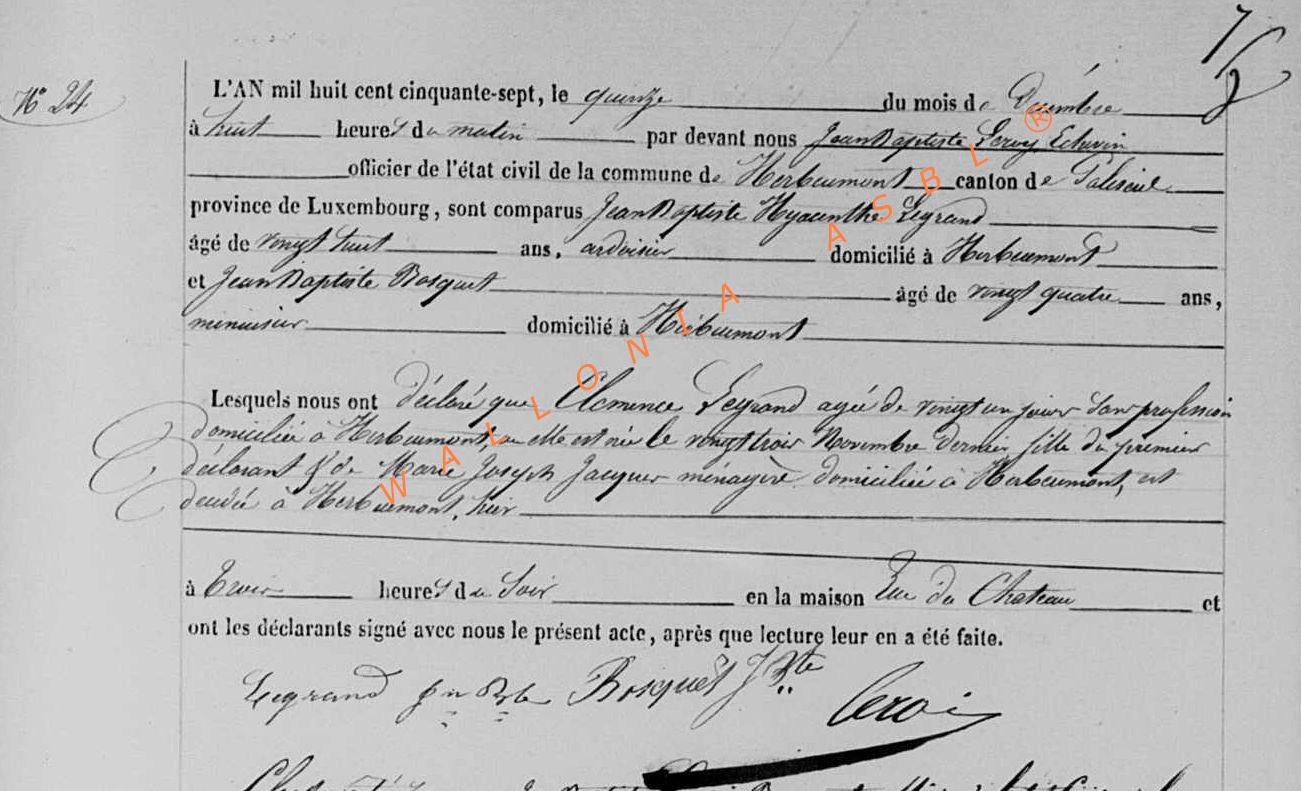 7/8
N° 24
L'AN mil huit cent cinquante-sept, le quinze du mois de Décembre
à huit heures du matin par devant nous Jean Baptiste Leroy, Echevin
officier de l'état civil de la commune de Herbeumont canton de Paliseul
province de Luxembourg, sont comparus Jean Baptiste Hyacinthe Legrand
âgé de vingt huit ans, ardoisier domicilié à Herbeumont
et Jean Baptiste Bosquet âgé de vingt quatre ans,
menuisier domicilié à Herbeumont
Lesquels nous ont déclaré que Clémence Legrand agée de vingt un jours sans profession
domiciliée à Herbeumont, où elle est née le vingt trois Novembre dernier fille du premier
déclarant & de Marie Joseph Jacques ménagère domiciliée à Herbeumont, est
décédée à Herbeumont, hier
à trois heures du Soir en la maison Rue du Chateau et
ont les déclarants signé avec nous le présent acte, après que lecture leur en a été faite.
Legrand jn Bte Bosquet J Bte Leroi
WALLONIA ASBL ®